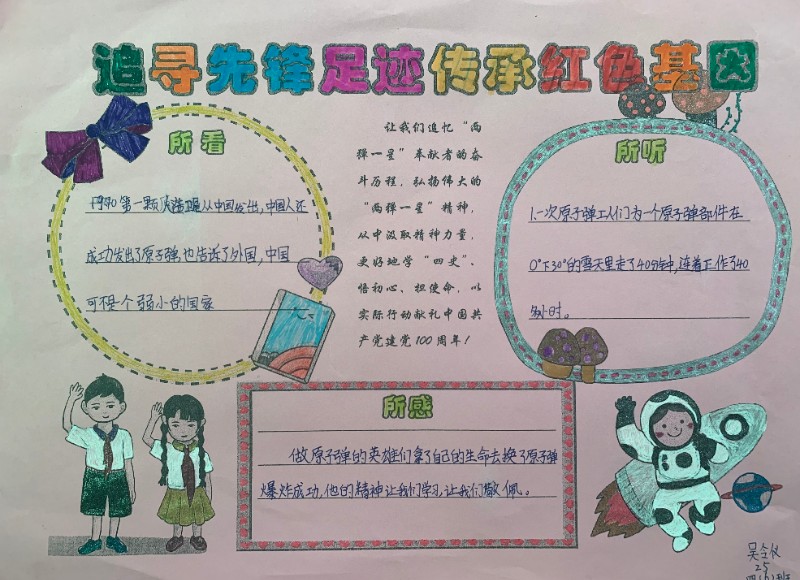 追寻先锋足迹传承红色基因
所看
第一颗从中国发出,中国人还
成功发出了原子弹,也告诉了外国,中国
可不是个弱小的国家
让我们追忆“两
弹一星”奉献者的奋
斗历程，弘扬伟大的
“两弹一星”精神，
从中汲取精神力量，
更好地学“四史”、
悟初心、担使命，以
实际行动献礼中国共
产党建党100周年！
所听
1.一次原子弹工人们为一个原子弹部件在
0°下30°的雪天里走了40分钟,连着工作了40
多小时。
所感
做原子弹的英雄们拿了自己的生命去换了原子弹
爆炸成功,他的精神让我们学习,让我们敬佩。
25